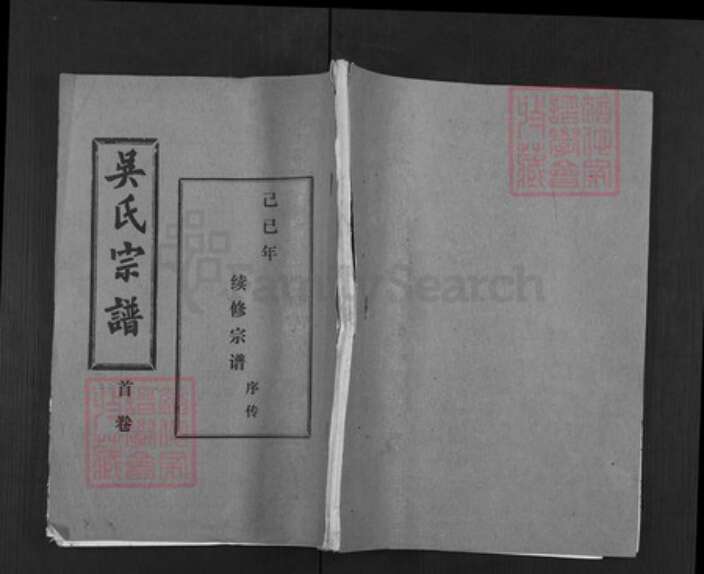 吴氏宗譜
首卷
己巳年
续修宗谱
序传
FamilySearch